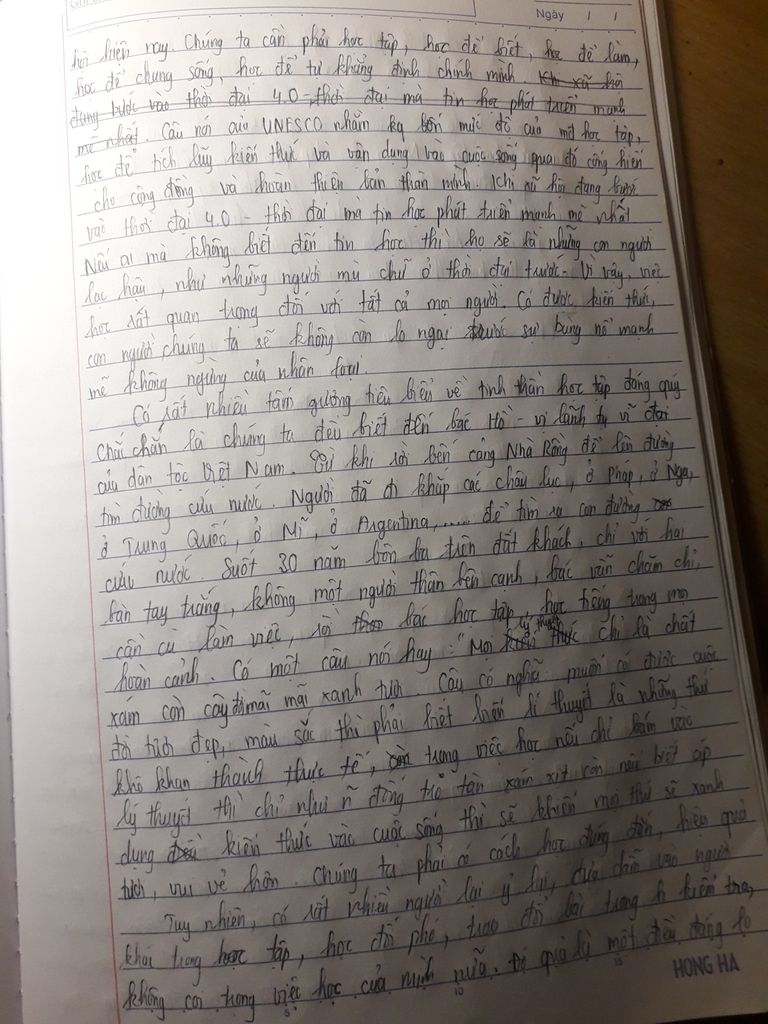 Ngày / /
hội hiện nay. Chúng ta cần phải học tập, học để biết, học để làm,
học để chung sống, học để tự khẳng định chính mình. Khi xã hội
đang bước vào thời đại 4.0 - thời đại mà tin học phát triển mạnh
mẽ nhất. Câu nói của UNESCO nhằm bốn mức độ của học tập,
học để tích lũy kiến thức và vận dụng vào cuộc sống qua đó cống hiến
cho cộng đồng và hoàn thiện bản thân mình. Khi xã hội đang bước
vào thời đại 4.0 - thời đại mà tin học phát triển mạnh mẽ nhất
Nếu ai mà không biết đến tin học thì họ sẽ là những con người
lạc hậu, như những người mù chữ ở thời đại trước. Vì vậy, việc
học rất quan trọng đối với tất cả mọi người. Có được kiến thức,
con người chúng ta sẽ không còn lo ngại trước sự bùng nổ mạnh
mẽ không ngừng của nhân loại.
Có rất nhiều tấm gương tiêu biểu về tinh thần học tập đáng quý
Chắc chắn là chúng ta đều biết đến bác Hồ - vị lãnh tụ vĩ đại
của dân tộc Việt Nam. Từ khi rời bến cảng Nhà Rồng để lên đường
tìm đường cứu nước. Người đã đi khắp các châu lục, ở Pháp, ở Nga,
ở Trung Quốc, ở Mĩ, ở Argentina,..... để tìm ra con đường
cứu nước. Suốt 30 năm bôn ba trên đất khách, chỉ với hai
bàn tay trắng, không một người thân bên cạnh, bác vẫn chăm chỉ,
cần cù làm việc, rồi bác học tập, học tiếng trong mọi
hoàn cảnh. Có một câu nói hay: "Mọi lý thuyết chỉ là chất
xám còn cây đời mãi mãi xanh tươi. Câu có nghĩa muốn có được cuộc
đời tươi đẹp, màu sắc thì phải biết biến lí thuyết là những thứ
khô khan thành thực tế, trong việc học nếu chỉ bám vào
lý thuyết thì chỉ như đống tro tàn xám xịt còn nếu biết áp
dụng kiến thức vào cuộc sống thì sẽ khiến mọi thứ sẽ xanh
tươi, vui vẻ hơn. Chúng ta phải có cách học đúng đắn, hiệu quả
Tuy nhiên, có rất nhiều người lại ỷ lại, dựa dẫm vào người
khác trong học tập, học đối phó, trao đổi bài trong h kiểm tra,
không coi trọng việc học của mình nữa. Đó quả là một điều đáng lo
5 10 15
HONG HA